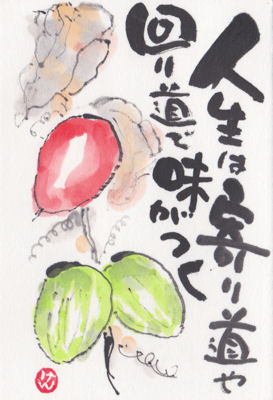 人生は寄り道や
回り道で味がつく
けん